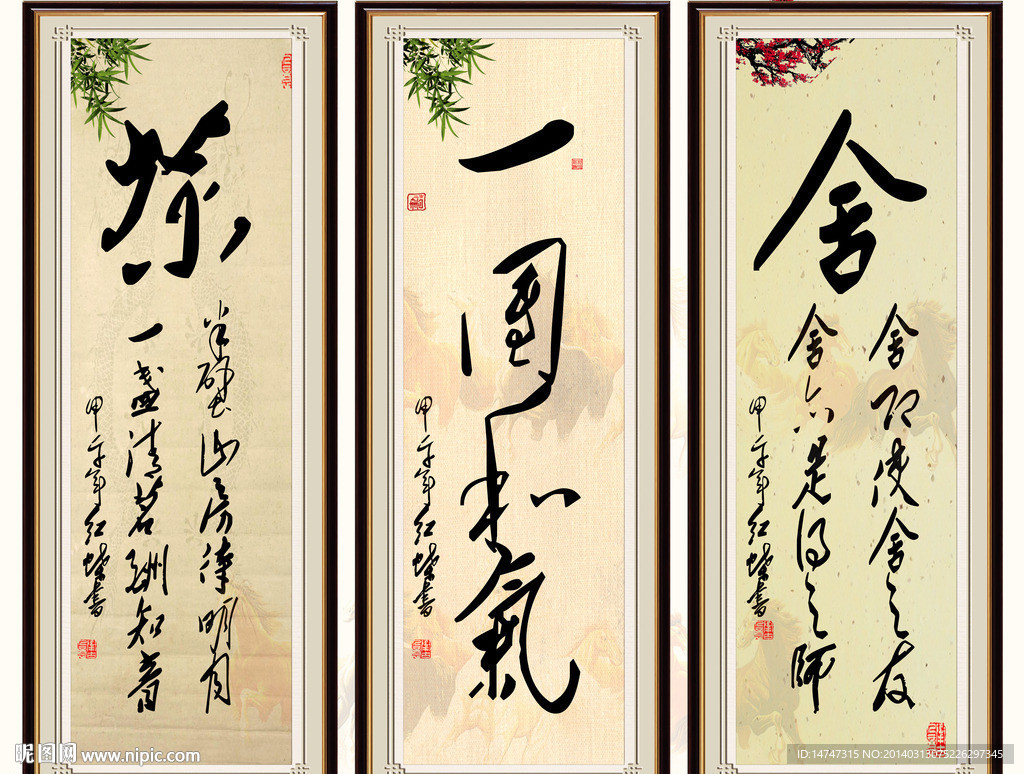 茶
半壁山房待明月
一盏清茗酬知音
甲午年红蝶書
一團和氣
甲午年红蝶書
舍
舍舍之友
舍亦是得之师
甲午年红蝶書
昵图网 www.nipic.com
ID:14747315 NO:20140313075226297345